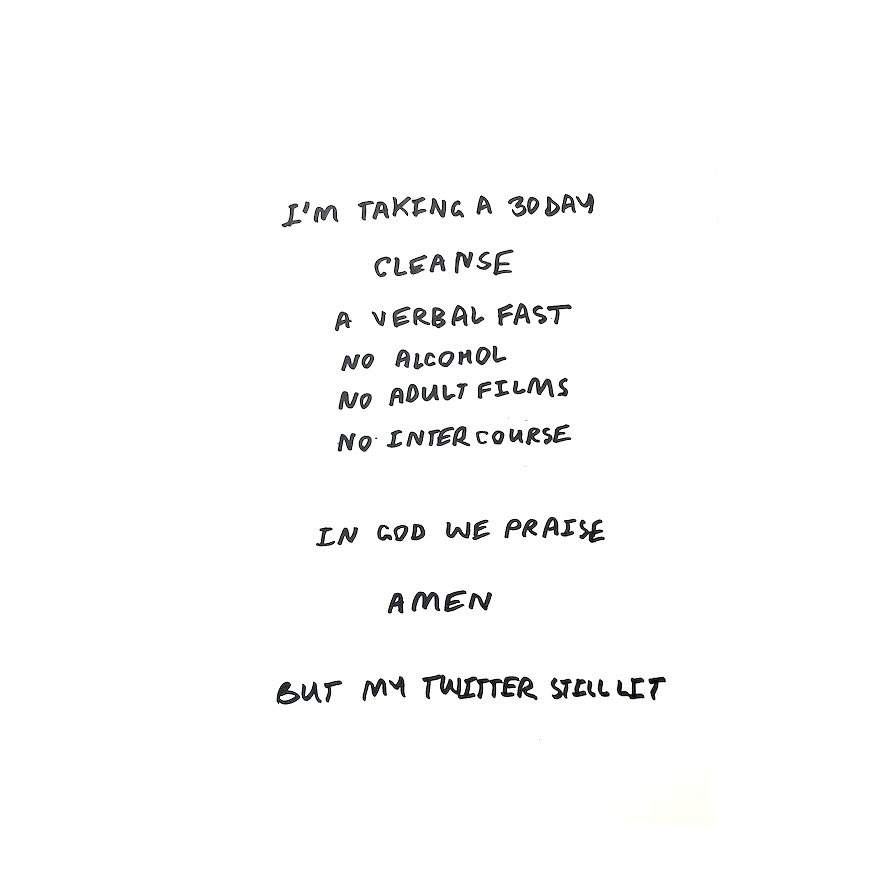 I'M TAKING A 30 DAY
CLEANSE
A VERBAL FAST
NO ALCOHOL
NO ADULT FILMS
NO INTERCOURSE
IN GOD WE PRAISE
AMEN
BUT MY TWITTER STILL LIT